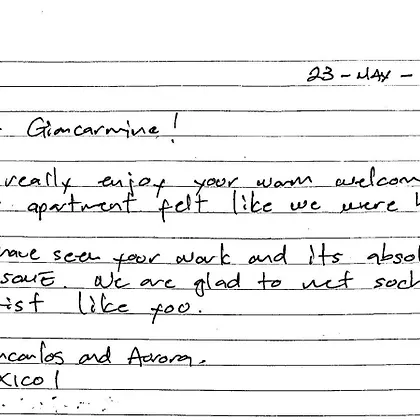 23-MAY-
Giancarmine!
really enjoy your warm welcom
apartment felt like we were h
have seen your work and its absol
some. We are glad to met such
ist like you.
ncarlos and Aurora.
xico!